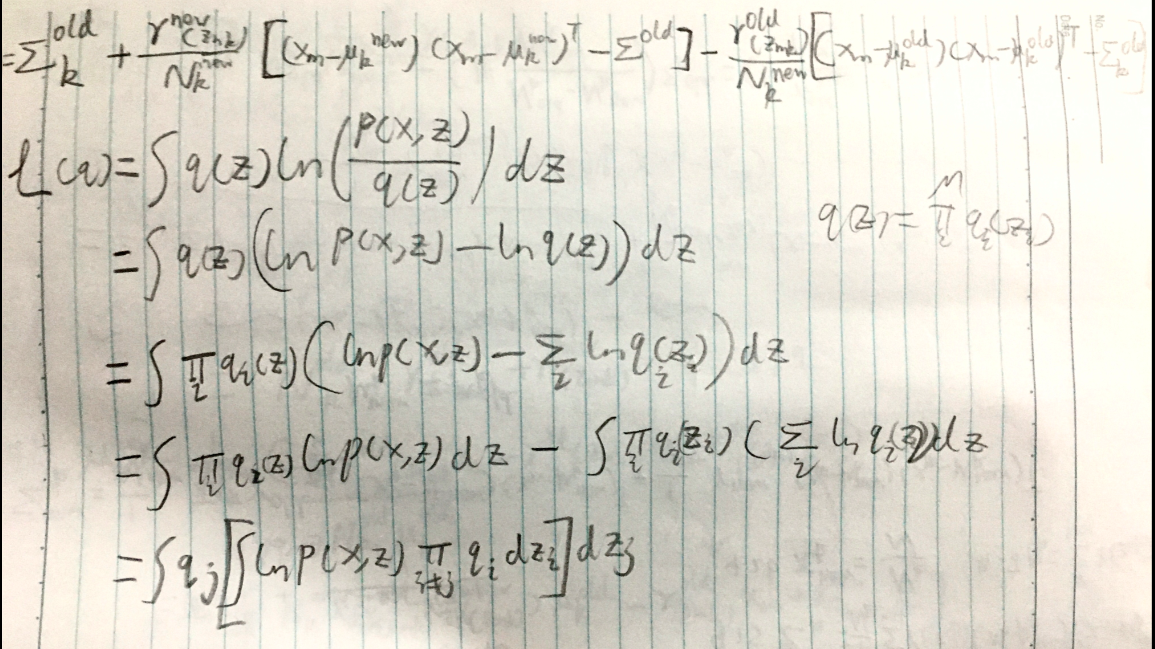 =Σ_k^old + γ^new(z_nk)/N_k^new [(x_m-μ_k^new)(x_m-μ_k^new)^T - Σ^old] - γ^old(z_mk)/N_k^new [(x_m-μ_k^old)(x_m-μ_k^old)^T - Σ_k^old]
L(q)=∫q(z)ln(p(x,z)/q(z))dz
q(z)=∏_i^M q_i(z_i)
=∫q(z)(ln p(x,z)-ln q(z))dz
=∫∏_i q_i(z)(ln p(x,z)-Σ_i ln q_i(z_i))dz
=∫∏_i q_i(z) ln p(x,z) dz - ∫∏_i q_i(z_i)(Σ_i ln q_i(z))dz
=∫q_j[∫ln p(x,z) ∏_{i≠j} q_i dz_i]dz_j